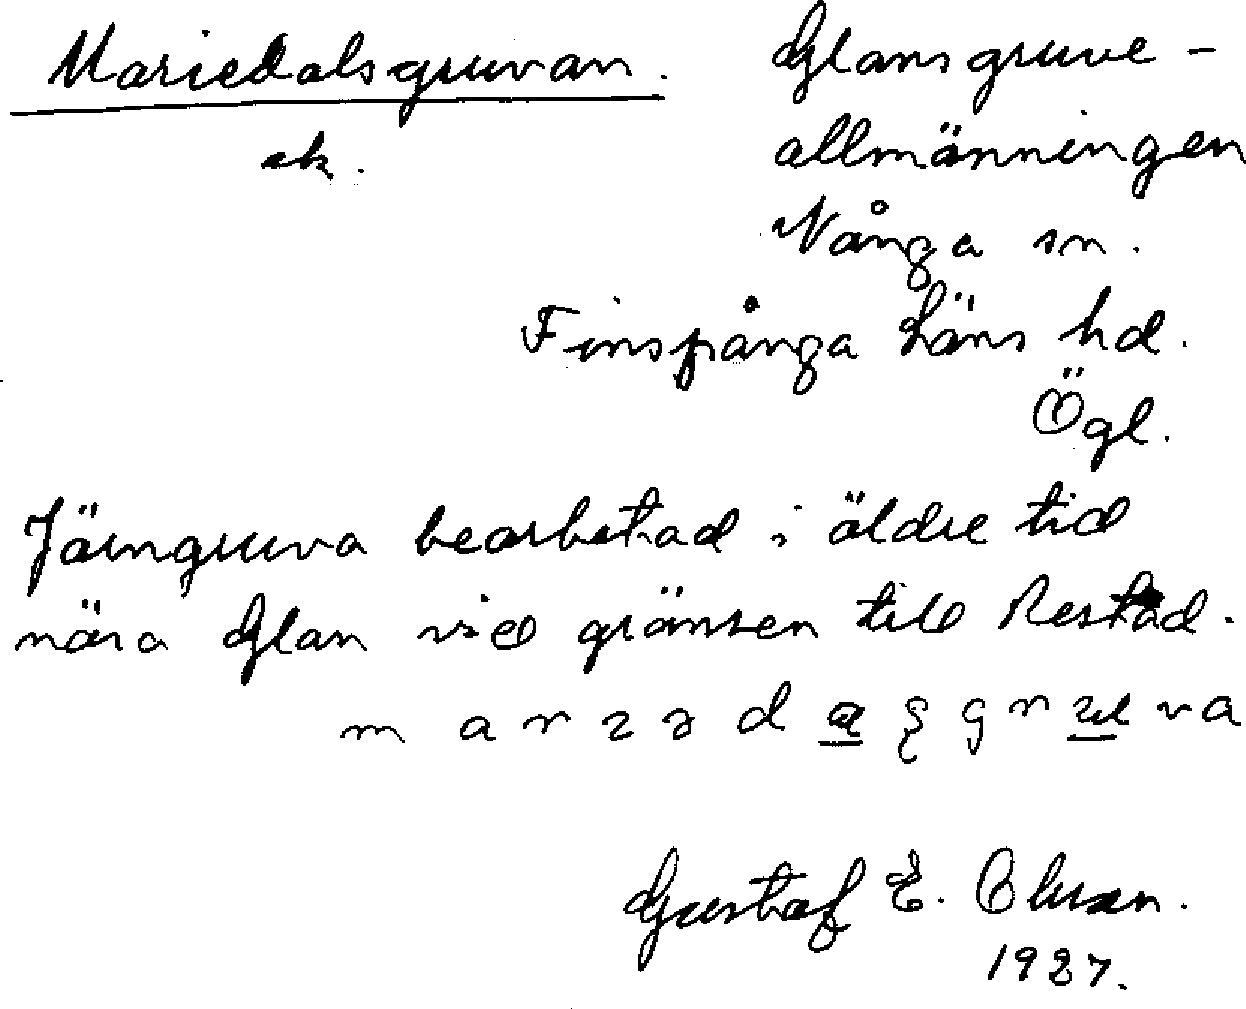 Mariedalsgruvan. Glansgruve-
ak. allmänningen
Vånga sn.
Finspånga läns hd.
Ögl.
Järngruva bearbetad i äldre tid
nära Glan vid gränsen till Restad.
Gustaf E. Olsson.
1927.